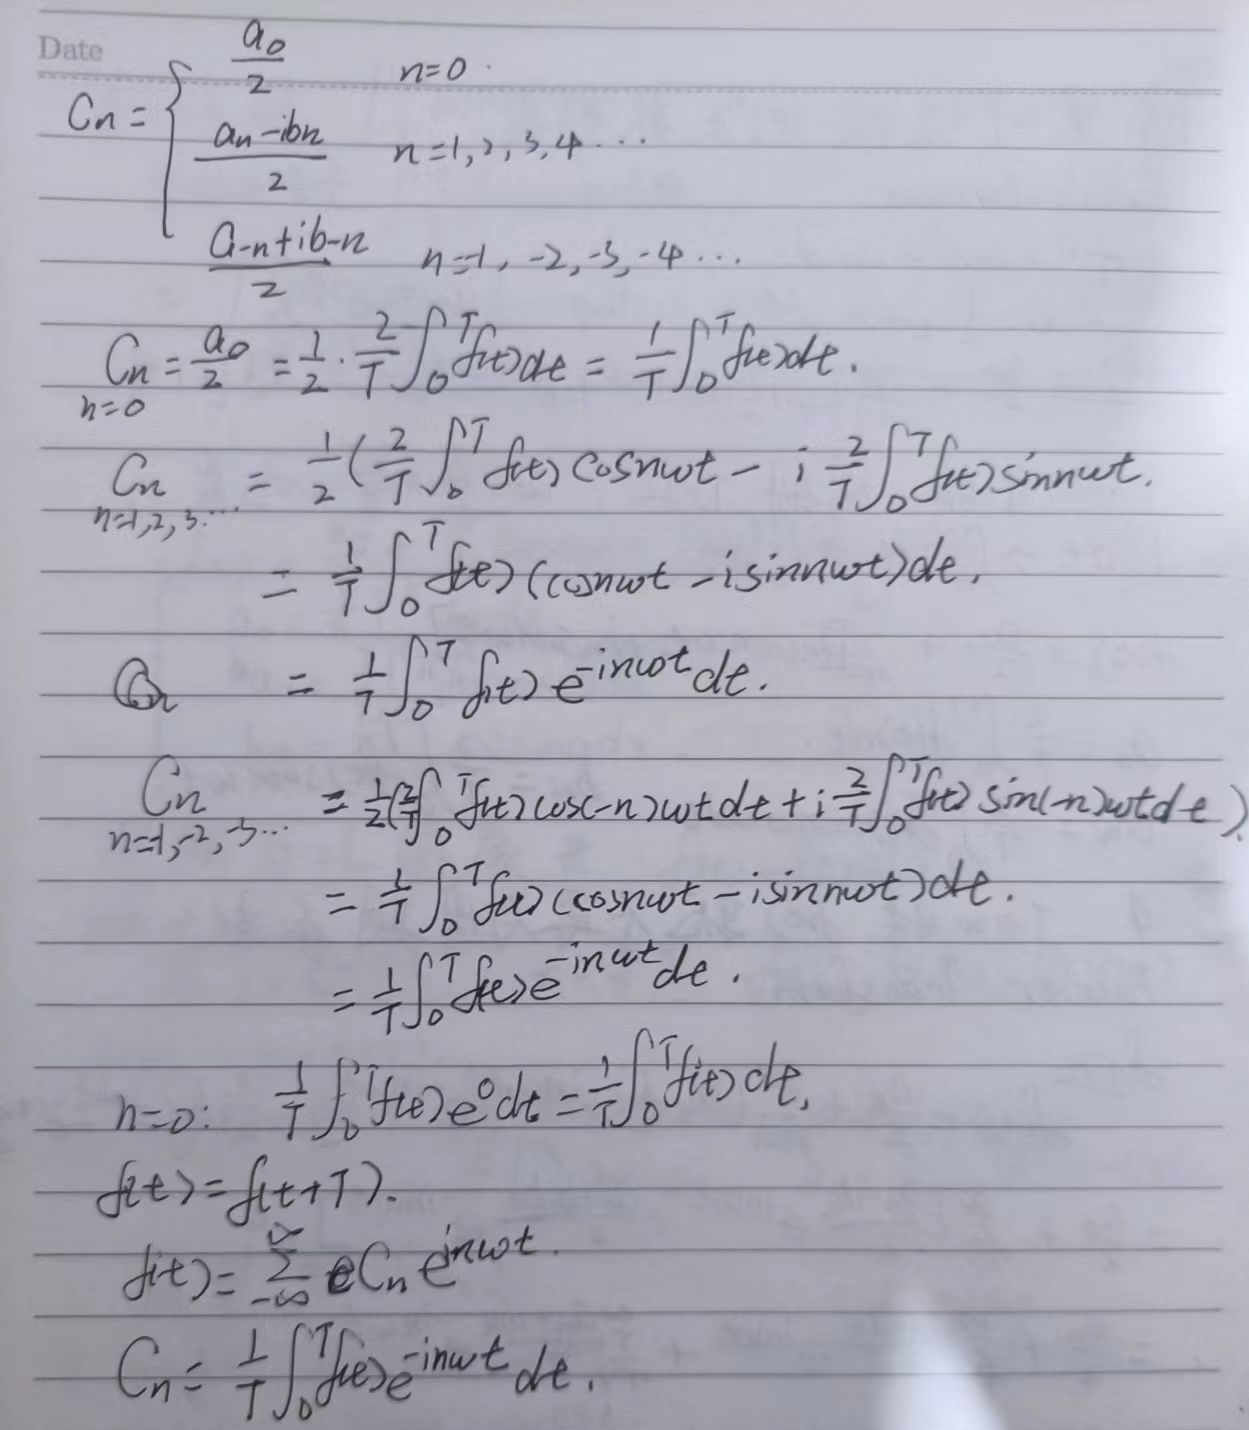 Date
Cn = { a0/2 n=0.
(an-ibn)/2 n=1,2,3,4...
(a-n+ib-n)/2 n=-1, -2,-3,-4...
Cn = a0/2 = 1/2 · 2/T ∫0^T f(t)dt = 1/T ∫0^T f(t)dt.
n=0
Cn = 1/2 (2/T ∫0^T f(t) cosnωt - i 2/T ∫0^T f(t) sinnωt.
n=1,2,3...
= 1/T ∫0^T f(t) (cosnωt - isinnωt)dt.
= 1/T ∫0^T f(t) e^-inωt dt.
Cn = 1/2(2/T ∫0^T f(t) cos(-n)ωtdt + i 2/T ∫0^T f(t) sin(-n)ωtdt).
n=-1,-2,-3...
= 1/T ∫0^T f(t) (cosnωt - isinnωt)dt.
= 1/T ∫0^T f(t) e^-inωt dt.
n=0: 1/T ∫0^T f(t) e^0 dt = 1/T ∫0^T f(t) dt,
f(t) = f(t+T).
f(t) = ∑-∞^∞ Cn e^inωt.
Cn = 1/T ∫0^T f(t) e^-inωt dt.